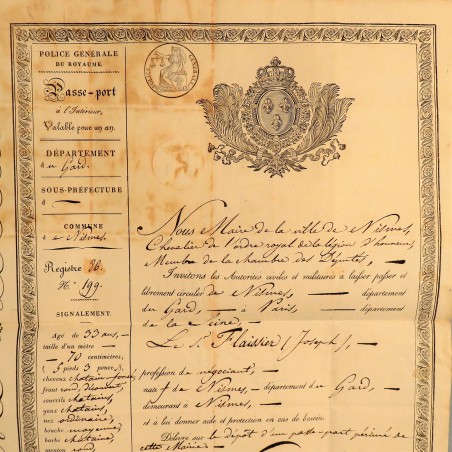 POLICE GÉNÉRALE
DU ROYAUME
Passe-port
à l'Intérieur,
Valable pour un an.
DÉPARTEMENT
du Gard.
SOUS-PRÉFECTURE
d
COMMUNE
de Nismes,
Registre 26.
N.° 199.
SIGNALEMENT.
Agé de 33 ans,
taille d'un mètre
70 centimètres,
( 5 pieds 3 pouces,)
cheveux chatain-foncé,
front rond,
sourcils chatains,
yeux chatains,
nez ordinaire,
bouche moyenne,
barbe chataine,
menton rond,
Nous Maire de la ville de Nismes,
Chevalier de l'ordre royal de la légion d'honneur,
Membre de la chambre des Députés,
Invitons les Autorités civiles et militaires à laisser passer et
librement circuler de Nismes, département
du Gard, à Paris, département
de la Seine,
Le S.r Flaissier (Joseph),
profession de négociant,
natif de Nismes, département du Gard,
demeurant à Nismes,
et à lui donner aide et protection en cas de besoin.
Délivré sur le dépôt d'un passe-port périmé de
cette Mairie